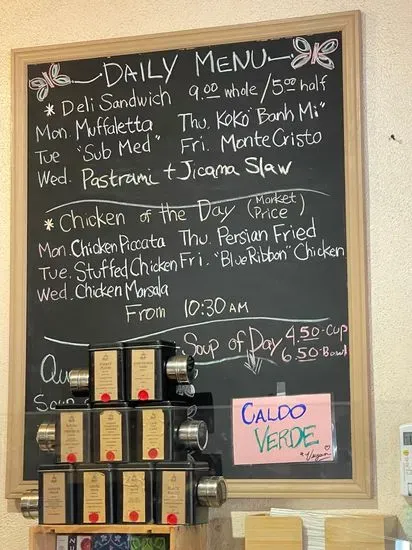 DAILY MENU
* Deli Sandwich 9.00 whole / 5.00 half
Mon. Muffaletta Thu. KOKO "Banh Mi"
Tue "Sub Med" Fri. Monte Cristo
Wed. Pastrami + Jicama Slaw
* Chicken of the Day (Market Price)
Mon. Chicken Piccata Thu. Persian Fried
Tue. Stuffed Chicken Fri. "Blue Ribbon" Chicken
Wed. Chicken Marsala
From 10:30 AM
Soup of Day 4.50-Cup
6.50-Bowl
CALDO
VERDE
*Vegan